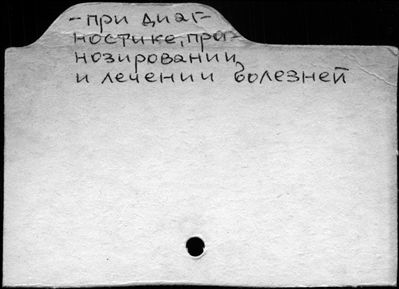 - при диаг-
ностике, про-
нозировании
и лечении болезней